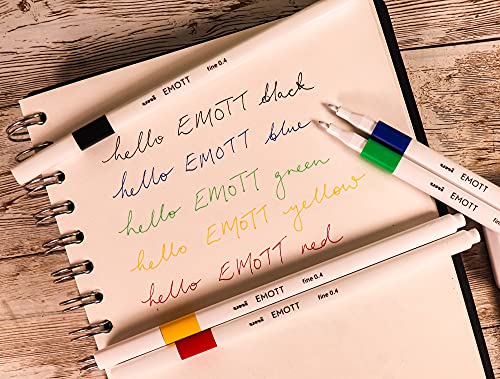 uni EMOTT fine 0.4
hello EMOTT black
hello EMOTT blue
hello EMOTT green
hello EMOTT yellow
hello EMOTT red
uni EMOTT
uni EMOTT
uni EMOTT fine 0.4
uni EMOTT fine 0.4